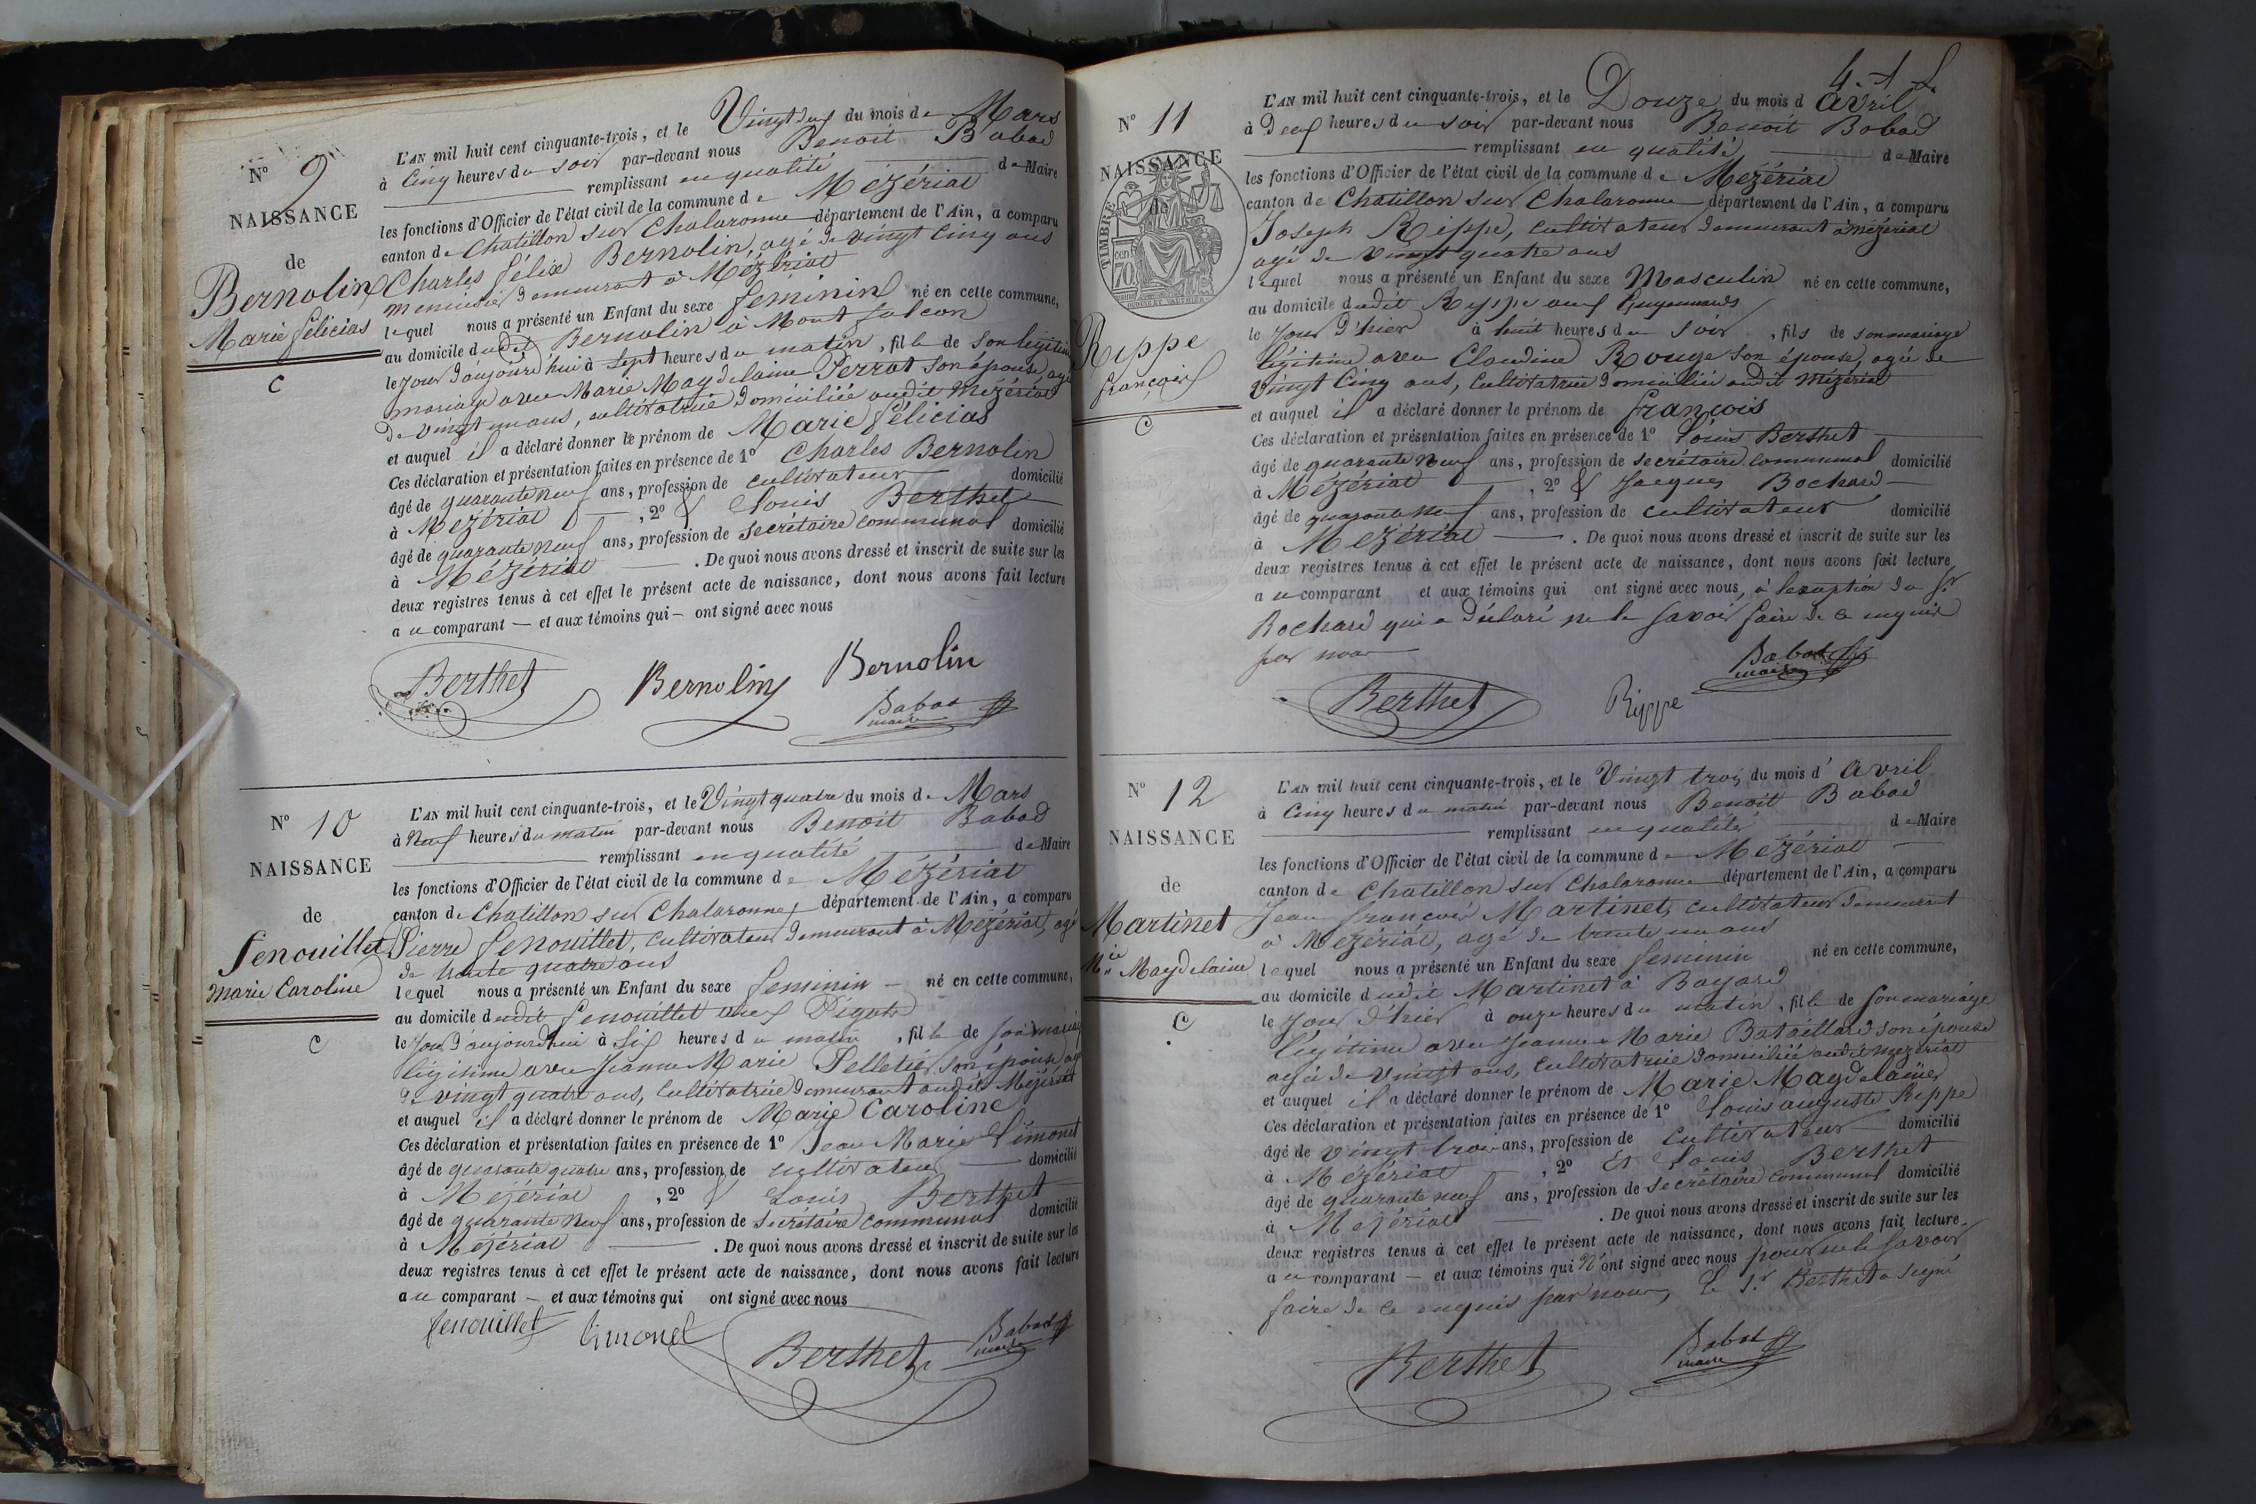 N° 9
NAISSANCE
de
Bernolin
Marie Félicias
C
L'AN mil huit cent cinquante-trois, et le Vingt deux du mois de Mars
à Cinq heures du soir par-devant nous Benoit Babad
remplissant en qualité de Maire
les fonctions d'Officier de l'état civil de la commune de Mézériat
canton de Chatillon sur Chalaronne département de l'Ain, a comparu
Charles Félix Bernolin, agé de vingt cinq ans
menuisier demeurant à Mézériat
lequel nous a présenté un Enfant du sexe féminin né en cette commune,
au domicile dudit Bernolin à Mont falcon
le jour d'aujourd'hui à sept heures du matin, fille de son légitime
mariage avec Marie Magdelaine Perrat son épouse agée
de vingt un ans, cultivatrice domiciliée audit Mézériat
et auquel il a déclaré donner le prénom de Marie Félicias
Ces déclaration et présentation faites en présence de 1° Charles Bernolin
âgé de quarante neuf ans, profession de cultivateur domicilié
à Mézériat, 2° & Louis Berthet
âgé de quarante neuf ans, profession de secrétaire communal domicilié
à Mézériat. De quoi nous avons dressé et inscrit de suite sur les
deux registres tenus à cet effet le présent acte de naissance, dont nous avons fait lecture
au comparant — et aux témoins qui — ont signé avec nous
Berthet Bernolin Bernolin
Babad
maire
N° 10
NAISSANCE
de
Fenouillet
Marie Caroline
C
L'AN mil huit cent cinquante-trois, et le Vingt quatre du mois de Mars
à Neuf heures du matin par-devant nous Benoit Babad
remplissant en qualité de Maire
les fonctions d'Officier de l'état civil de la commune de Mézériat
canton de Chatillon sur Chalaronne département de l'Ain, a comparu
Pierre Fenouillet, cultivateur demeurant à Mézériat, agé
de trente quatre ans
lequel nous a présenté un Enfant du sexe féminin — né en cette commune,
au domicile dudit Fenouillet
le jour d'aujourd'hui à Six heures du matin, fille de son mariage
légitime avec Jeanne Marie Pelletier son épouse agée
de vingt quatre ans, cultivatrice demeurant audit Mézériat
et auquel il a déclaré donner le prénom de Marie Caroline
Ces déclaration et présentation faites en présence de 1° Jean Marie Limonet
âgé de quarante quatre ans, profession de cultivateur domicilié
à Mézériat, 2° & Louis Berthet
âgé de quarante neuf ans, profession de secrétaire communal domicilié
à Mézériat. De quoi nous avons dressé et inscrit de suite sur les
deux registres tenus à cet effet le présent acte de naissance, dont nous avons fait lecture
au comparant — et aux témoins qui ont signé avec nous
fenouillet Limonet Berthet Babad
maire
N° 11
NAISSANCE
de
TIMBRE
70
Rippe
françois
C
L'AN mil huit cent cinquante-trois, et le Douze du mois d'avril
à Deux heures du soir par-devant nous Benoit Babad
remplissant en qualité de Maire
les fonctions d'Officier de l'état civil de la commune de Mézériat
canton de Chatillon sur Chalaronne département de l'Ain, a comparu
Joseph Rippe, cultivateur demeurant à Mézériat
agé de vingt quatre ans
lequel nous a présenté un Enfant du sexe Masculin né en cette commune,
au domicile dudit Rippe
le jour d'hier à huit heures du soir, fils de son mariage
légitime avec Claudine Rouge son épouse, agée de
vingt cinq ans, cultivatrice domiciliée audit Mézériat
et auquel il a déclaré donner le prénom de françois
Ces déclaration et présentation faites en présence de 1° Louis Berthet
âgé de quarante neuf ans, profession de secrétaire communal domicilié
à Mézériat, 2° & Jacques Bochard
âgé de quarante neuf ans, profession de cultivateur domicilié
à Mézériat. De quoi nous avons dressé et inscrit de suite sur les
deux registres tenus à cet effet le présent acte de naissance, dont nous avons fait lecture
au comparant et aux témoins qui ont signé avec nous, à l'exception du Sr
Bochard qui a déclaré ne le savoir faire de ce enquis
par nous
Babad
maire
Berthet Rippe
N° 12
NAISSANCE
de
Martinet
Mie Magdelaine
C
L'AN mil huit cent cinquante-trois, et le Vingt trois du mois d'avril
à Cinq heures du matin par-devant nous Benoit Babad
remplissant en qualité de Maire
les fonctions d'Officier de l'état civil de la commune de Mézériat
canton de Chatillon sur Chalaronne département de l'Ain, a comparu
Jean françois Martinet, cultivateur demeurant
à Mézériat, agé de trente un ans
lequel nous a présenté un Enfant du sexe féminin né en cette commune,
au domicile dudit Martinet à Bayard
le jour d'hier à onze heures du matin, fille de son mariage
légitime avec Jeanne Marie Bataillard son épouse
agée de vingt ans, cultivatrice domiciliée audit Mézériat
et auquel il a déclaré donner le prénom de Marie Magdelaine
Ces déclaration et présentation faites en présence de 1° Louis auguste Rippe
âgé de vingt trois ans, profession de cultivateur domicilié
à Mézériat, 2° Et Louis Berthet
âgé de quarante neuf ans, profession de secrétaire communal domicilié
à Mézériat. De quoi nous avons dressé et inscrit de suite sur les
deux registres tenus à cet effet le présent acte de naissance, dont nous avons fait lecture
au comparant — et aux témoins qui n'ont signé avec nous pour ne le savoir
faire de ce enquis par nous, le Sr Berthet a signé
Berthet Babad
maire